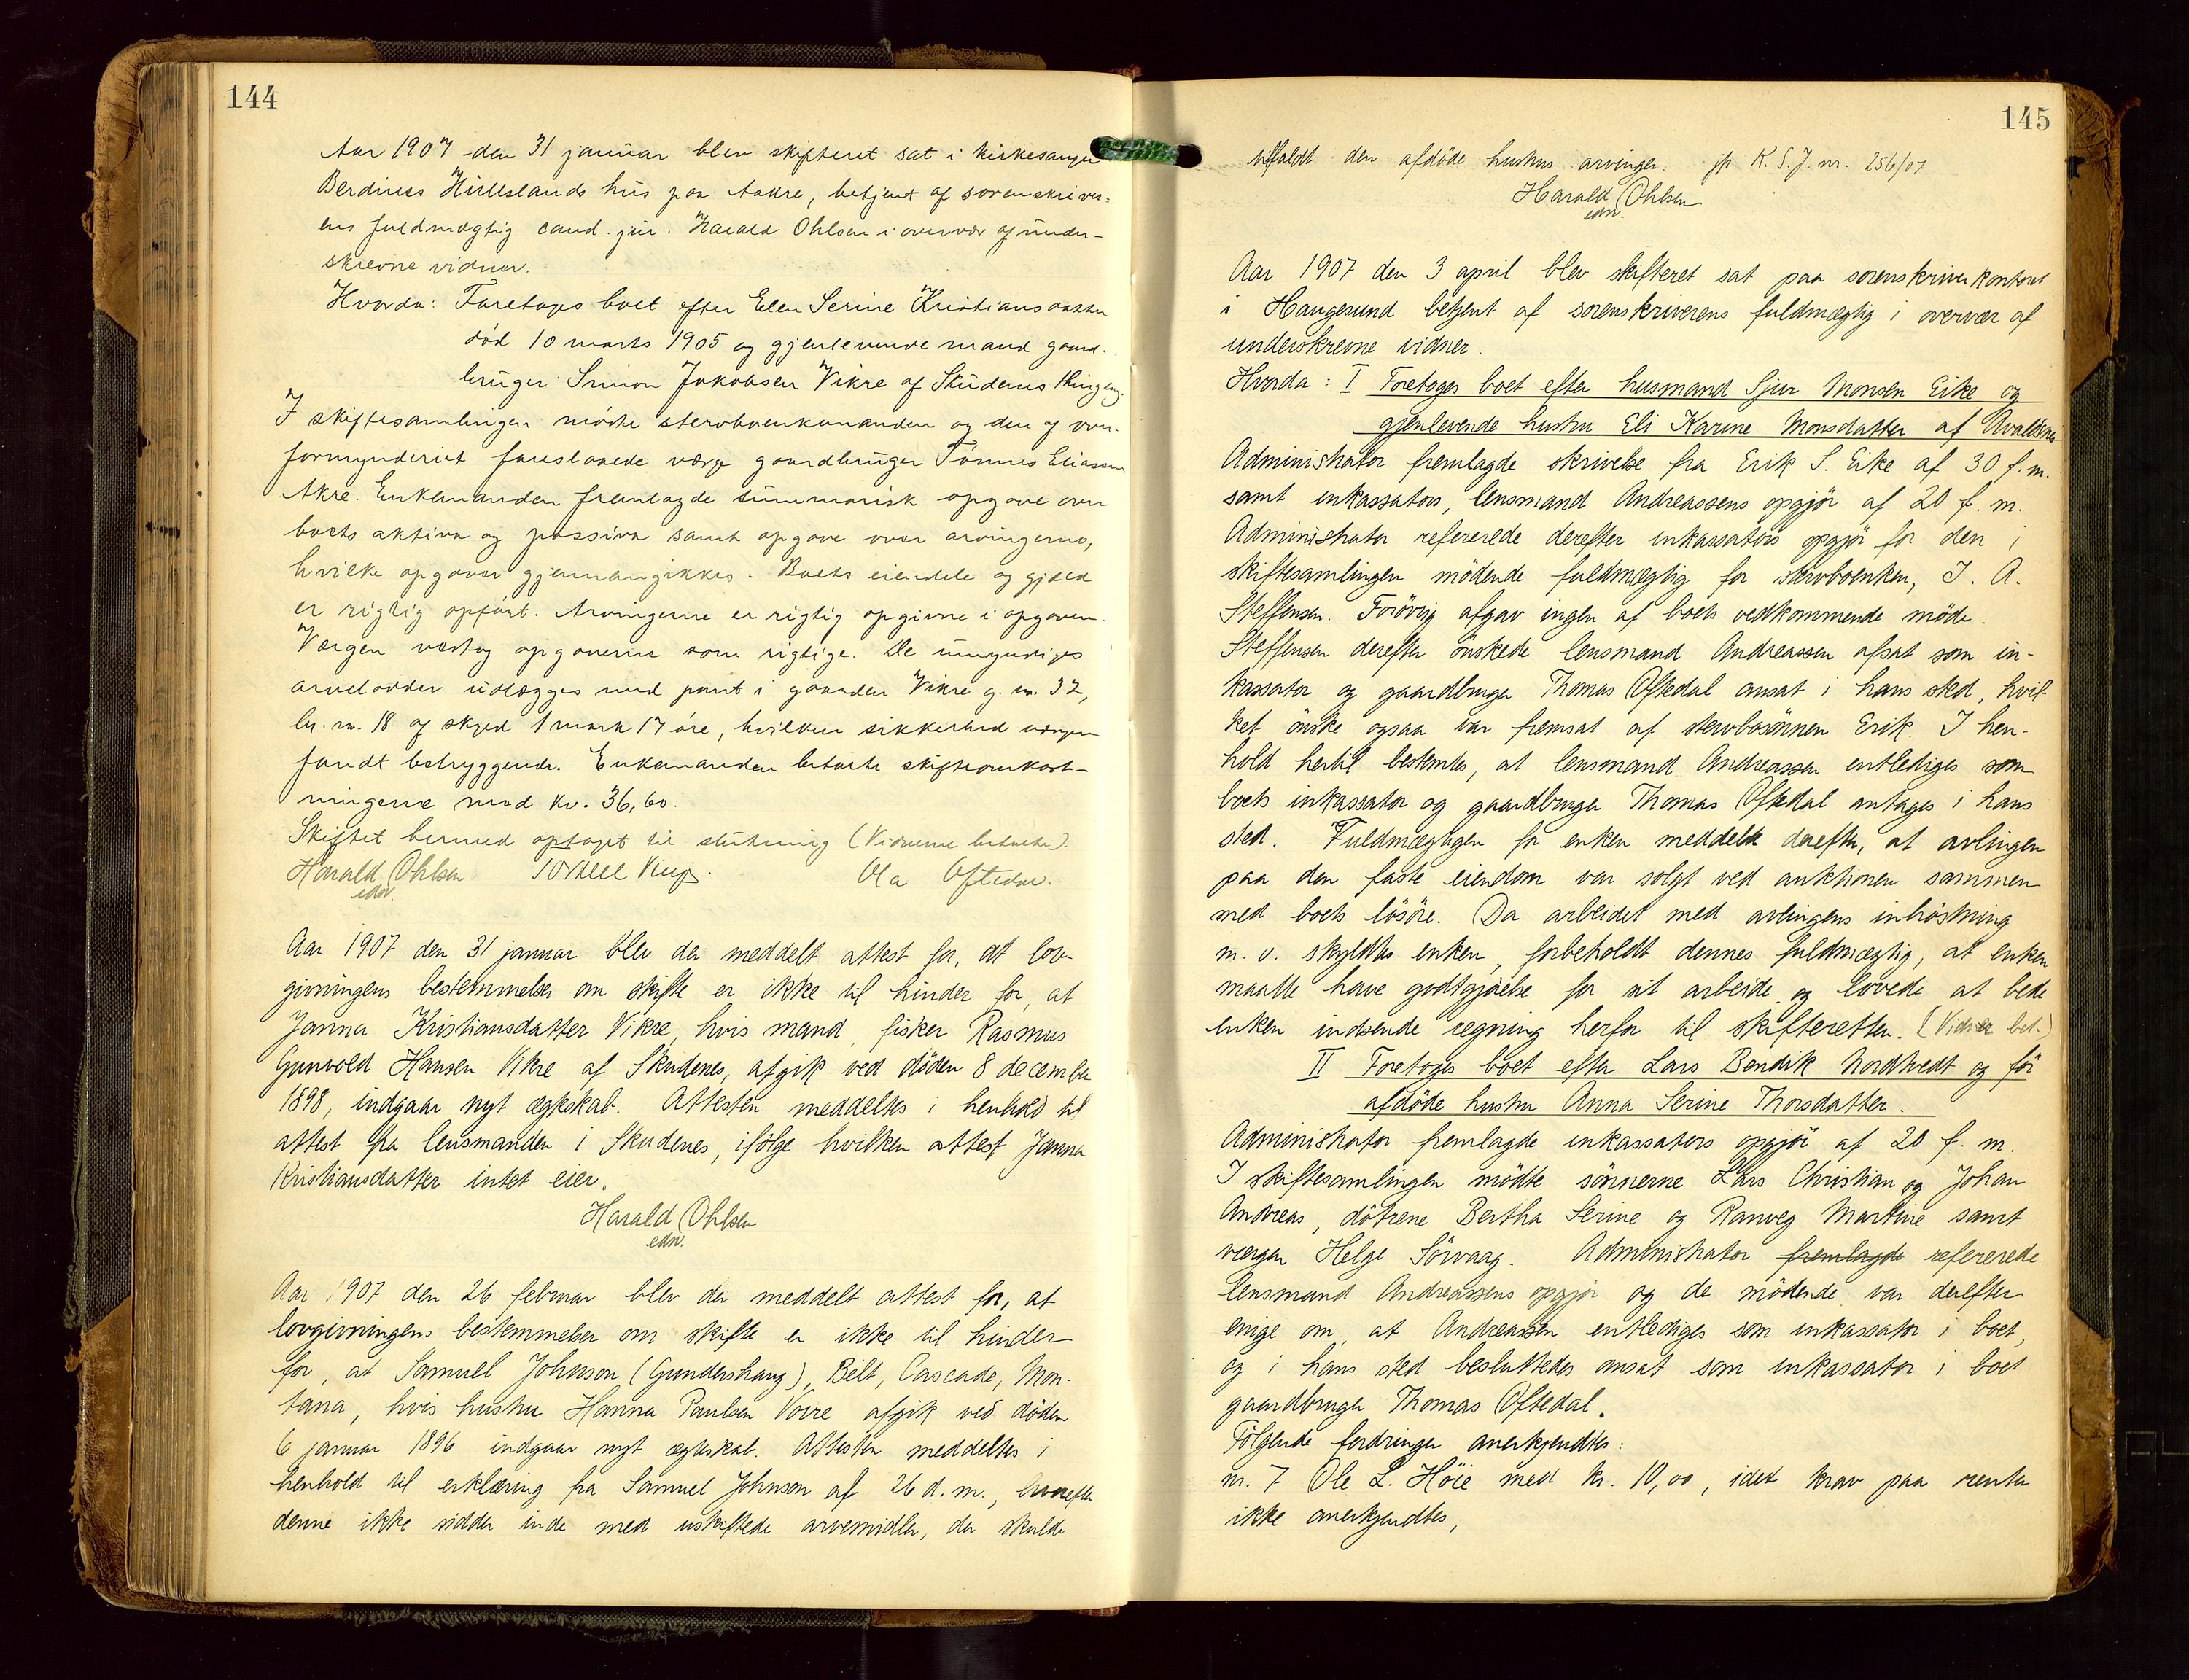 144
Aar 1907 den 31 januar blev skifteret sat i kirkesanger
Berdines Hillelands hus paa Aakre, betjent af sorenskriver-
ens fuldmægtig cand. jur. Harald Ohlsen i overvær af under-
skrevne vidner.
Hvorda: Foretages boet efter Elen Serine Kristiansdatter
død 10 marts 1905 og gjenlevende mand gaard-
bruger Simon Jakobsen Vikre af Skudenes thinglag.
I skiftesamlingen mødte stervboenkemanden og den af over-
formynderiet foreslaaede værge gaardbruger Tønnes Eliassen
Akre. Enkemanden fremlagde summarisk opgave over
boets aktiva og passiva samt opgave over arvingerne,
hvilke opgaver gjennemgikkes. Boets eiendele og gjæld
er rigtig opført. Arvingerne er rigtig opgivne i opgaven.
Værgen vedtog opgaverne som rigtige. De umyndiges
arvelodder udlægges med pant i gaarden Vikre g. nr. 32,
br. nr. 18 af skyld 1 mark 17 øre, hvilken sikkerhed værgen
fandt betryggende. Enkemanden betalte skifteomkost-
ningerne med kr. 36,60.
Skiftet hermed optaget til slutning (Vidnerne betalte).
Harald Ohlsen Torkell Vinje. Ola Oftedal.
edv.
Aar 1907 den 31 januar blev der meddelt attest for, at lov-
givningens bestemmelser om skifte er ikke til hinder for, at
Janna Kristiansdatter Vikre, hvis mand, fisker Rasmus
Gunvold Hansen Vikre af Skudenes, afgik ved døden 8 december
1898, indgaar nyt ægteskab. Attesten meddeltes i henhold til
attest fra lensmanden i Skudenes, ifølge hvilken attest Janna
Kristiansdatter intet eier.
Harald Ohlsen
edv.
Aar 1907 den 26 februar blev der meddelt attest for, at
lovgivningens bestemmelser om skifte er ikke til hinder
for, at Samuel Johnson (Gundershaug), Belt, Cascade, Mon-
tana, hvis hustru Hanna Paulsen Vorre afgik ved døden
6 januar 1896 indgaar nyt ægteskab. Attesten meddeltes i
henhold til erklæring fra Samuel Johnson af 26 d. m., hvorefter
denne ikke sidder inde med uskiftede arvemidler, der skulde
145
tilfaldt den afdøde hustrus arvinger. jfr K. S. J. nr. 256/07
Harald Ohlsen
edv.
Aar 1907 den 3 april blev skifteret sat paa sorenskriverkontoret
i Haugesund betjent af sorenskriverens fuldmægtig i overvær af
underskrevne vidner.
Hvorda: I Foretoges boet efter husmand Sjur Monsen Eike og
gjenlevende hustru Eli Karine Monsdatter af Avaldsnes
Administrator fremlagde skrivelse fra Erik S. Eike af 30 f. m.
samt inkassators, lensmand Andreassens opgjør af 20 f. m.
Administrator refererede derefter inkassators opgjør for den i
skiftesamlingen mødende fuldmægtig for stervboenken, J. A.
Steffensen. Forøvrig afgav ingen af boets vedkommende møde.
Steffensen derefter ønskede lensmand Andreassen afsat som in-
kassator og gaardbruger Thomas Oftedal ansat i hans sted, hvil-
ket ønske ogsaa var fremsat af stervbosønnen Erik. I hen-
hold hertil bestemtes, at lensmand Andreassen entlediges som
boets inkassator og gaardbruger Thomas Oftedal antages i hans
sted. Fuldmægtigen for enken meddelte derefter, at avlingen
paa den faste eiendom var solgt ved auktionen sammen
med boets løsøre. Da arbeidet med avlingens inhøstning
m. v. skyldtes enken, forbeholdt dennes fuldmægtig, at enken
maatte have godtgjørelse for sit arbeide og lovede at bede
enken indsende regning herfor til skifteretten. (Vidner bet.)
II Foretoges boet efter Lars Bendik Nordtvedt og før
afdøde hustru Anna Serine Thorsdatter.
Administrator fremlagde inkassators opgjør af 20 f. m.
I skiftesamlingen mødte sønnerne Lars Christian og Johan
Andreas, døtrene Bertha Serine og Ranveg Martine samt
værgen Helge Sørvaag. Administrator fremlagde refererede
lensmand Andreassens opgjør og de mødende var derefter
enige om, at Andreassen entlediges som inkassator i boet,
og i hans sted besluttedes ansat som inkassator i boet
gaardbruger Thomas Oftedal.
Følgende fordringer anerkjendtes:
nr. 7 Ole L. Høie med kr. 10,00, idet krav paa renter
ikke anerkjendtes,